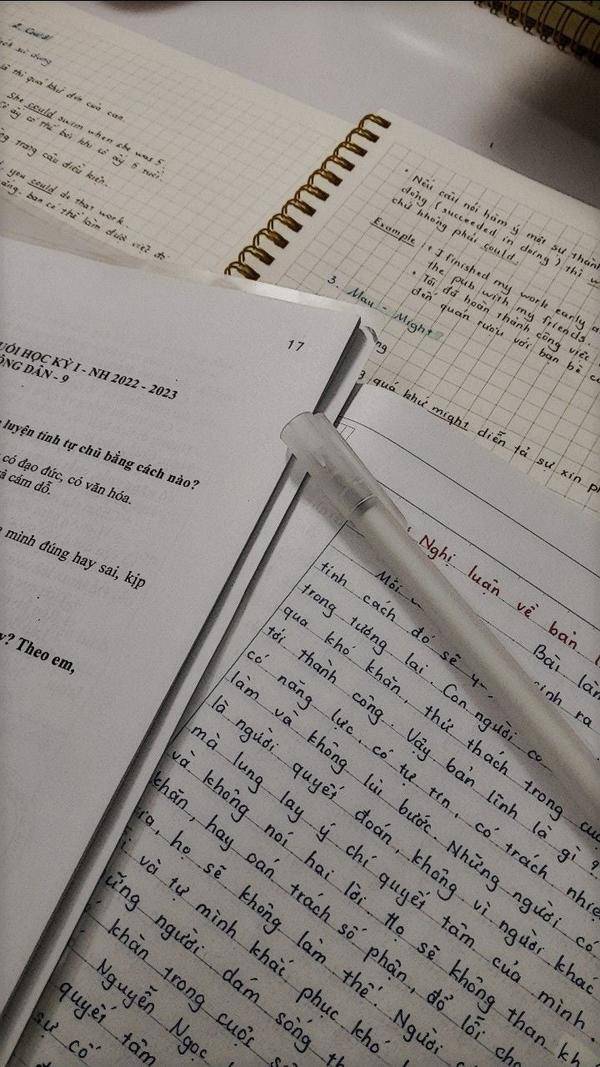 2. Could
là thì quá khứ đơn của can.
She could swim when she was 5.
Cô ấy có thể bơi khi cô ấy 5 tuổi.
trong câu điều kiện.
you could do that work.
bạn có thể làm được việc đó
• Nếu câu nói hàm ý một sự thành
động (succeeded in doing) thì
chứ không phải could.
Example: + I finished my work early a
the pub with my friends.
• Tôi đã hoàn thành công việc
đến quán rượu với bạn bè
3. May - Might
quá khứ might diễn tả sự xin
17
HỌC KỲ I - NH 2022 - 2023
DÂN - 9
luyện tính tự chủ bằng cách nào?
có đạo đức, có văn hóa.
cám dỗ.
mình đúng hay sai, kịp
? Theo em,
Nghị luận về bản
Bài làm
Mỗi
sinh ra
tính cách đó sẽ
trong tương lai. Con người
qua khó khăn, thử thách trong
tới thành công. Vậy bản lĩnh là gì?
có năng lực, có tự tin, có trách
làm và không lùi bước. Những người có
là người quyết đoán, không vì người khác
mà lung lay ý chí quyết tâm của mình.
và không nói hai lời. Họ sẽ không than
khăn, hay oán trách số phận, đổ lỗi cho
họ sẽ không làm thế. Người
và tự mình khắc phục khó
người dám sống
khăn trong cuộc
Nguyễn Ngọc
quyết tâm
sự cố